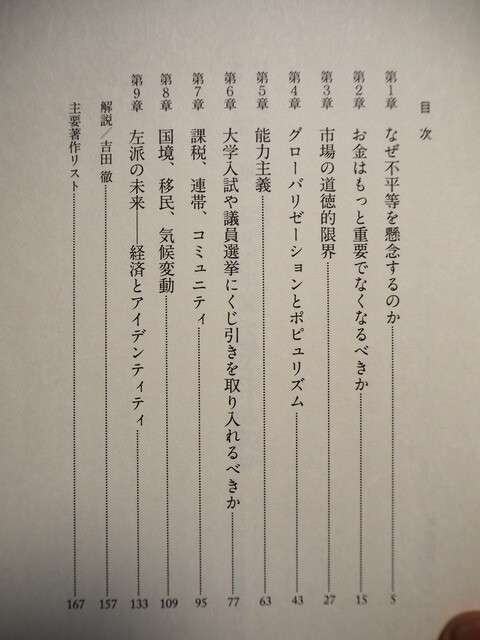 目次
第1章 なぜ不平等を懸念するのか 5
第2章 お金はもっと重要でなくなるべきか 15
第3章 市場の道徳的限界 27
第4章 グローバリゼーションとポピュリズム 43
第5章 能力主義 63
第6章 大学入試や議員選挙にくじ引きを取り入れるべきか 77
第7章 課税、連帯、コミュニティ 95
第8章 国境、移民、気候変動 109
第9章 左派の未来――経済とアイデンティティ 133
解説／吉田 徹 157
主要著作リスト 167